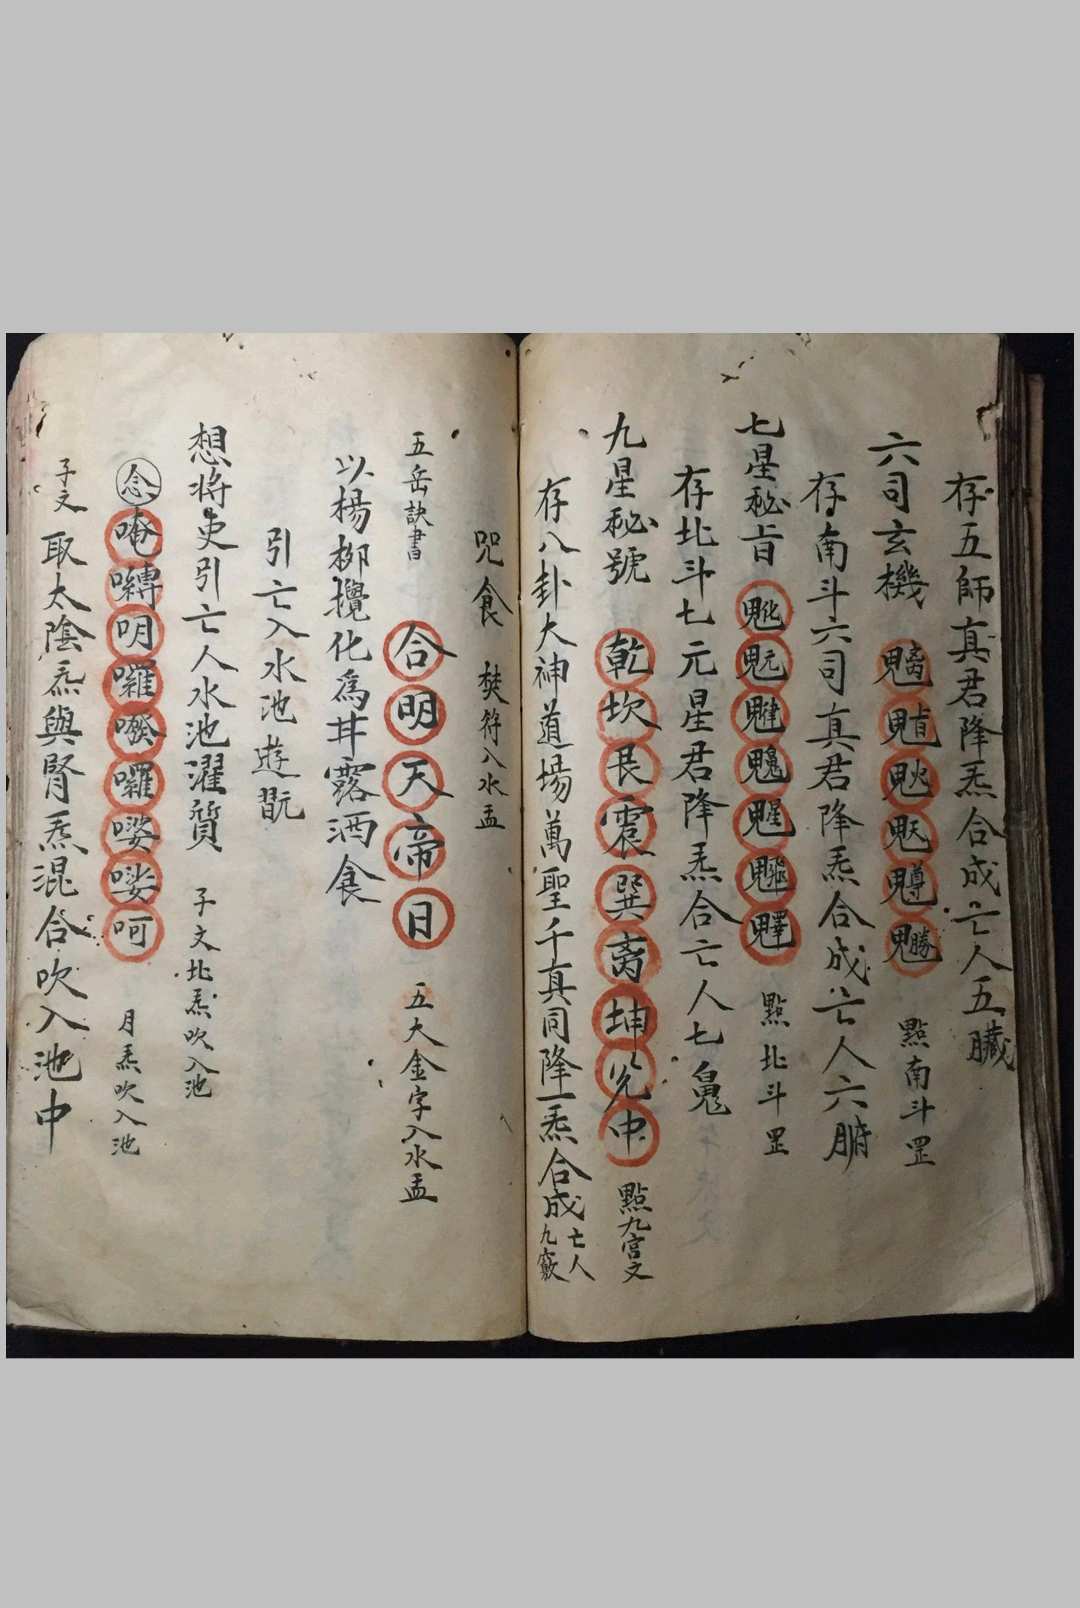 存五師真君降炁合成亡人五臟
六司玄機 點南斗罡
存南斗六司真君降炁合成亡人六腑
七星秘旨 點北斗罡
存北斗七元星君降炁合亡人七鬼
九星秘號 乾坎艮震巽离坤兊中 點九宮文
存八卦大神道場萬聖千真同降一炁合成亡人九竅
咒食 焚符入水盂
五岳訣書 合明天帝日 五大金字入水盂
以楊柳攪化爲甘露洒食
引亡入水池遊翫
想將吏引亡人水池濯質 子文北炁吹入池
念 唵嚩明囉 囉 呵 月炁吹入池
子文 取太陰炁與腎炁混合吹入池中